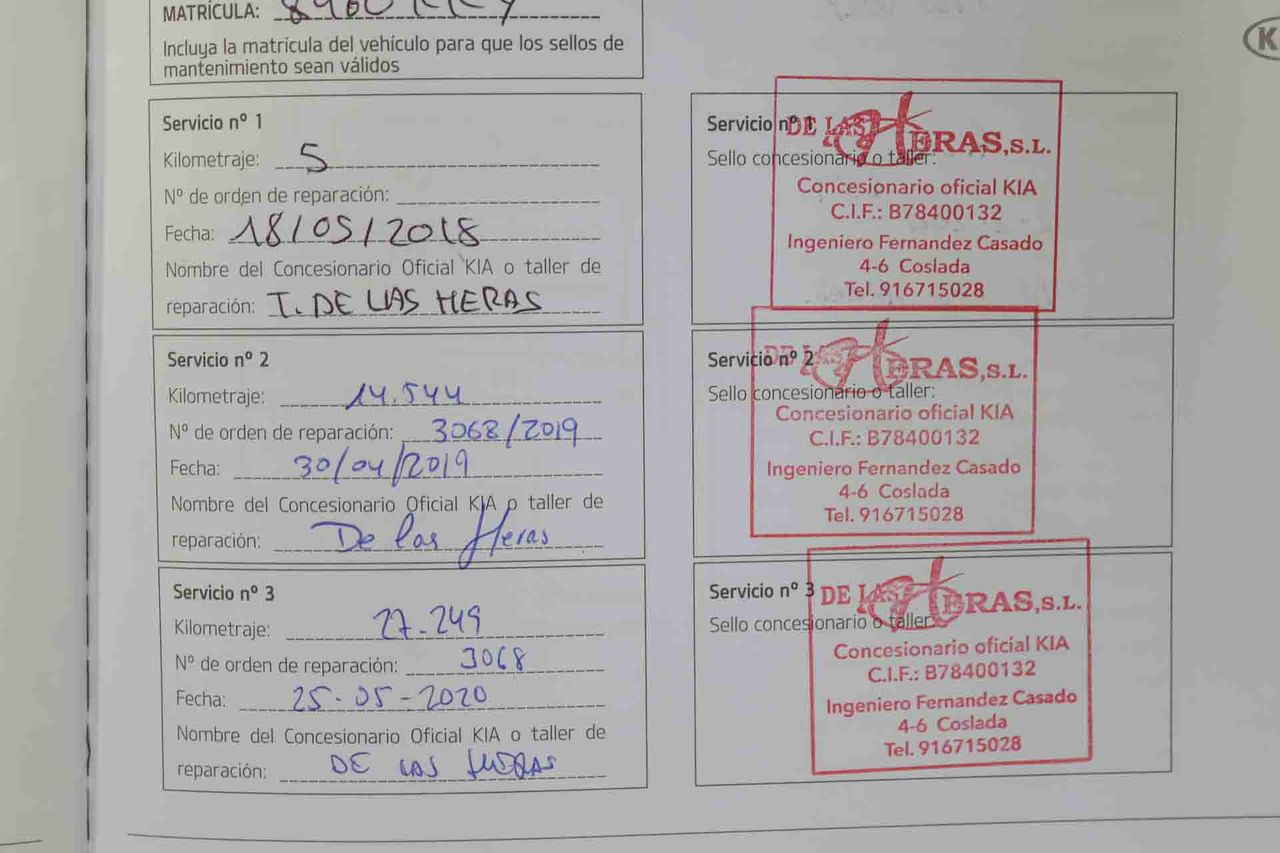 MATRÍCULA:
Incluya la matrícula del vehículo para que los sellos de
mantenimiento sean válidos
Servicio nº 1
Kilometraje: 5
Nº de orden de reparación:
Fecha: 18/05/2018
Nombre del Concesionario Oficial KIA o taller de
reparación: T. DE LAS HERAS
Servicio nº 1
Sello concesionario o taller:
DE LAS HERAS, S.L.
Concesionario oficial KIA
C.I.F.: B78400132
Ingeniero Fernandez Casado
4-6 Coslada
Tel. 916715028
Servicio nº 2
Kilometraje: 14.544
Nº de orden de reparación: 3068/2019
Fecha: 30/04/2019
Nombre del Concesionario Oficial KIA o taller de
reparación: De las Heras
Servicio nº 2
Sello concesionario o taller:
DE LAS HERAS, S.L.
Concesionario oficial KIA
C.I.F.: B78400132
Ingeniero Fernandez Casado
4-6 Coslada
Tel. 916715028
Servicio nº 3
Kilometraje: 27-249
Nº de orden de reparación: 3068
Fecha: 25-05-2020
Nombre del Concesionario Oficial KIA o taller de
reparación: DE LAS HERAS
Servicio nº 3
Sello concesionario o taller:
DE LAS HERAS, S.L.
Concesionario oficial KIA
C.I.F.: B78400132
Ingeniero Fernandez Casado
4-6 Coslada
Tel. 916715028